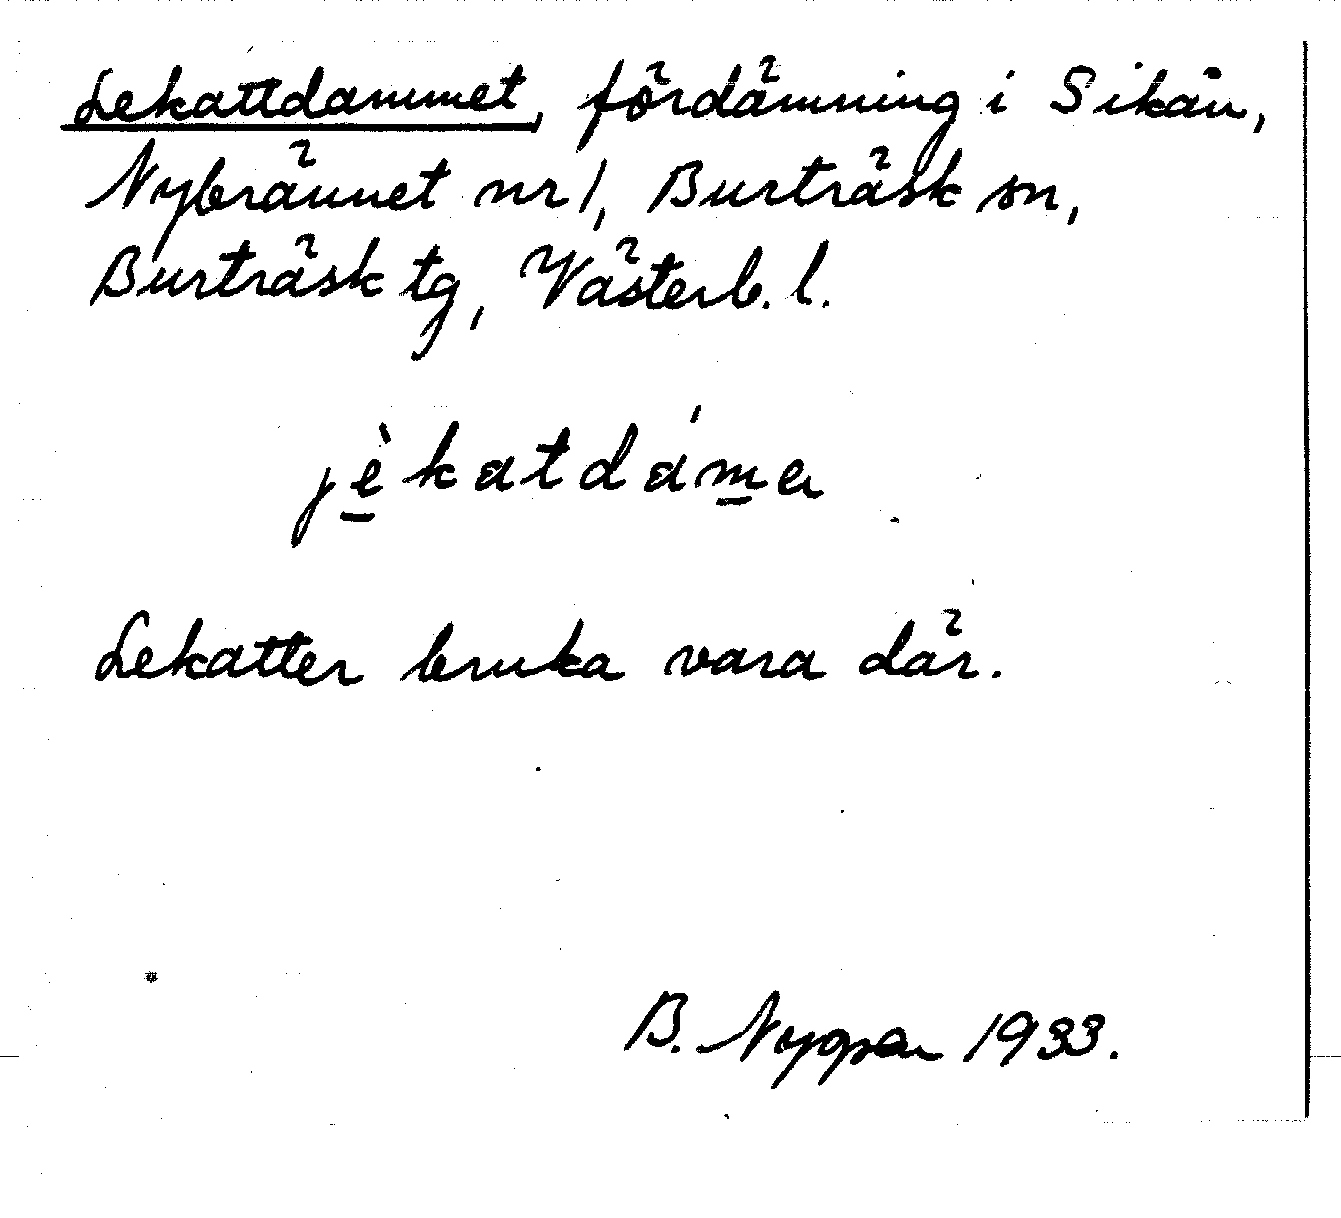 Lekattdammet, fördämning i Sikån,
Nybrännet nr 1, Burträsk sn,
Burträsk tg, Västerb. l.
jèkatdáma
Lekatter bruka vara där.
B. 1933.